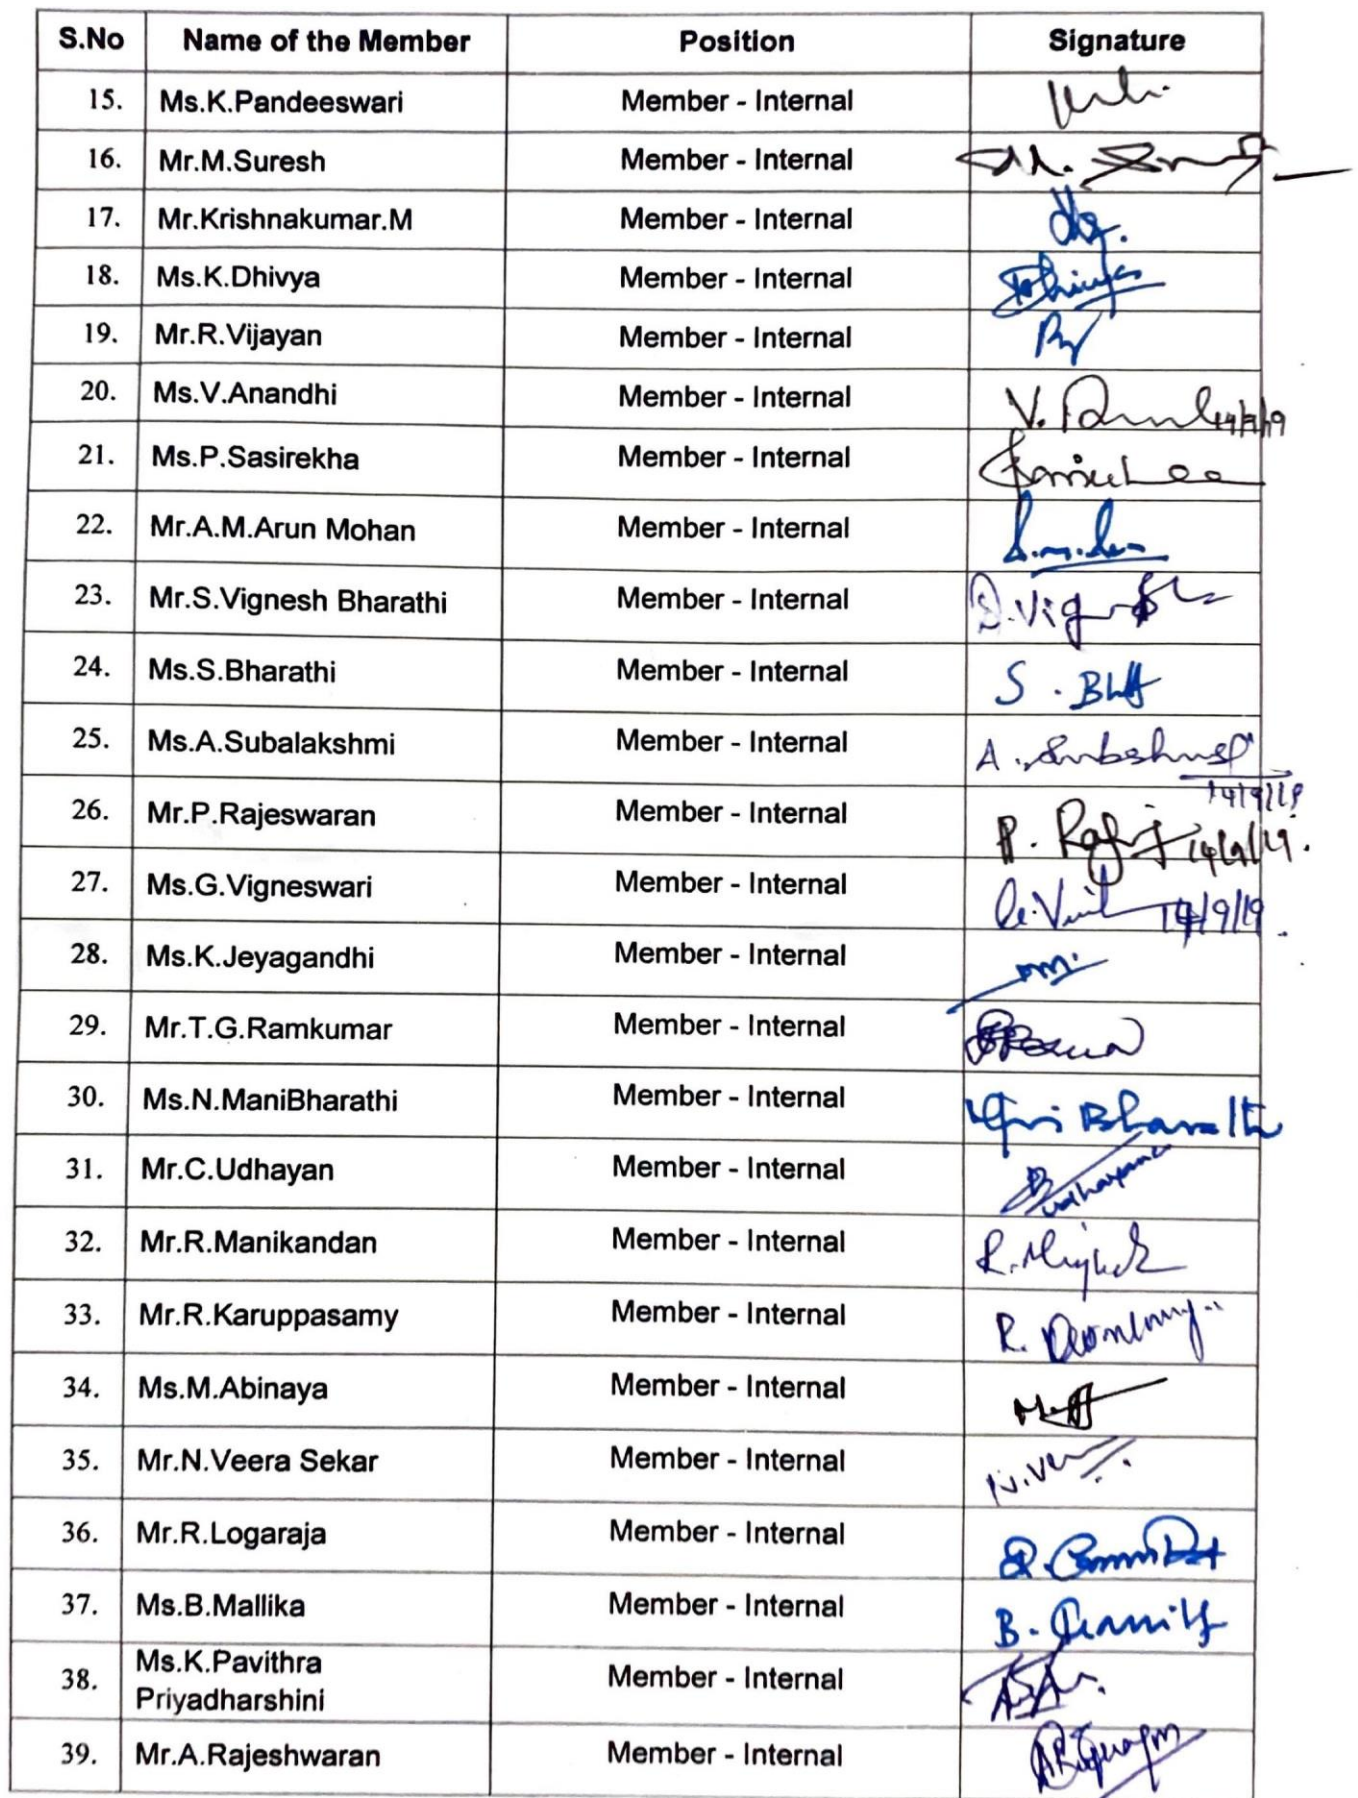 S.No Name of the Member Position Signature
15. Ms.K.Pandeeswari Member - Internal
16. Mr.M.Suresh Member - Internal
17. Mr.Krishnakumar.M Member - Internal
18. Ms.K.Dhivya Member - Internal
19. Mr.R.Vijayan Member - Internal
20. Ms.V.Anandhi Member - Internal V.
21. Ms.P.Sasirekha Member - Internal
22. Mr.A.M.Arun Mohan Member - Internal
23. Mr.S.Vignesh Bharathi Member - Internal
24. Ms.S.Bharathi Member - Internal S.
25. Ms.A.Subalakshmi Member - Internal A.
14/9/19
26. Mr.P.Rajeswaran Member - Internal P. 14/9/19.
27. Ms.G.Vigneswari Member - Internal 14/9/19.
28. Ms.K.Jeyagandhi Member - Internal
29. Mr.T.G.Ramkumar Member - Internal
30. Ms.N.ManiBharathi Member - Internal Bharathi
31. Mr.C.Udhayan Member - Internal
32. Mr.R.Manikandan Member - Internal R.
33. Mr.R.Karuppasamy Member - Internal R.
34. Ms.M.Abinaya Member - Internal
35. Mr.N.Veera Sekar Member - Internal
36. Mr.R.Logaraja Member - Internal
37. Ms.B.Mallika Member - Internal B.
38. Ms.K.Pavithra
Priyadharshini Member - Internal
39. Mr.A.Rajeshwaran Member - Internal